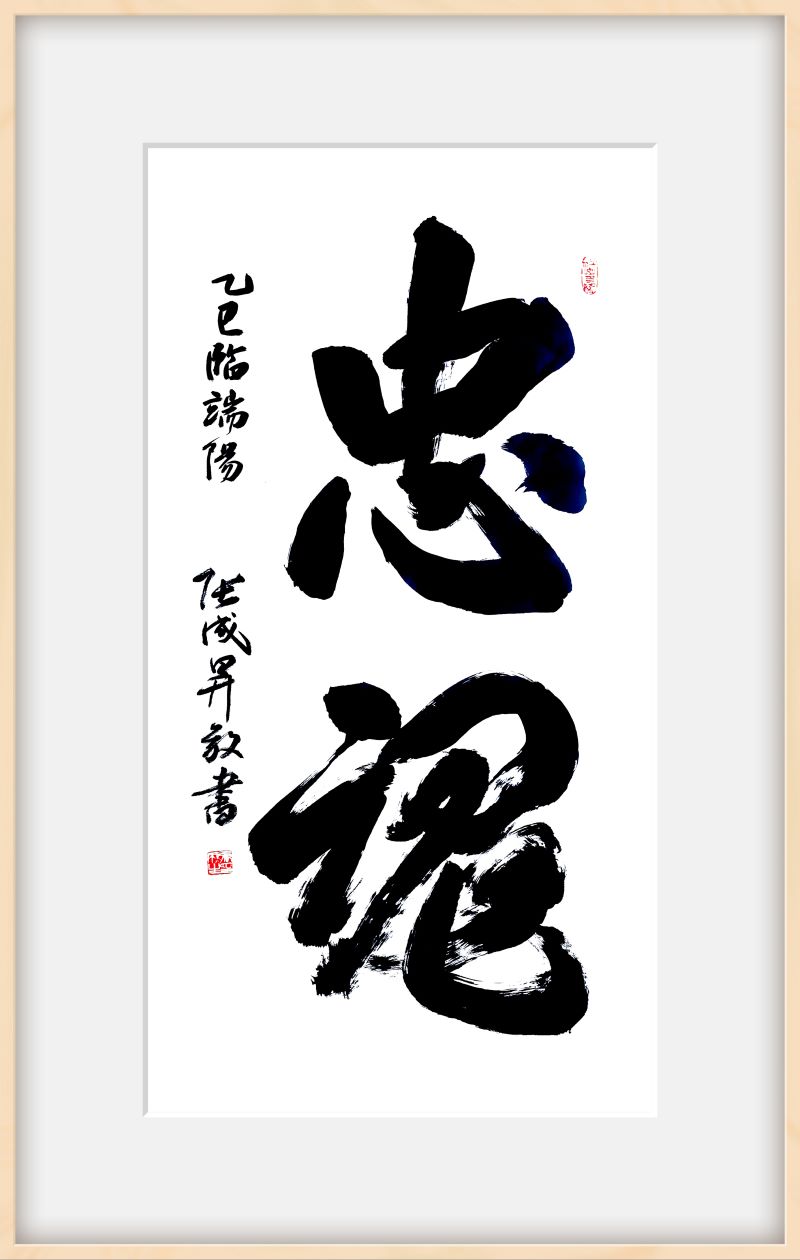 忠魂
乙巳臨端陽
陸成昇敬書